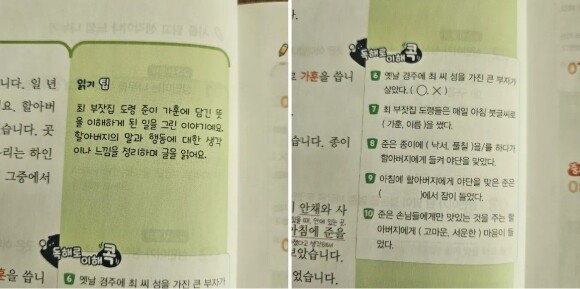 니다. 일 년
요. 할아버
습니다. 곳
리는 하인
그중에서
읽기 팁
최 부잣집 도령 준이 가훈에 담긴 뜻
을 이해하게 된 일을 그린 이야기예요.
할아버지의 말과 행동에 대한 생각
이나 느낌을 정리하며 글을 읽어요.
독해로 이해 콕
훈을 씁니
6 옛날 경주에 최 씨 성을 가진 큰 부자가
가훈을 씁니
습니다. 종이
안채와 사
침에 준을
보았습니다.
었습니다.
독해로 이해 콕
6 옛날 경주에 최 씨 성을 가진 큰 부자가
살았다. ( ○, × )
7 최 부잣집 도령들은 매일 아침 붓글씨로
( 가훈, 이름 )을 썼다.
8 준은 종이에 ( 낙서, 풀칠 )을/를 하다가
할아버지에게 들켜 야단을 맞았다.
9 아침에 할아버지에게 야단을 맞은 준은
( )에서 잠이 들었다.
10 준은 손님들에게만 맛있는 것을 주는 할
아버지에게 ( 고마운, 서운한 ) 마음이 들
었다.